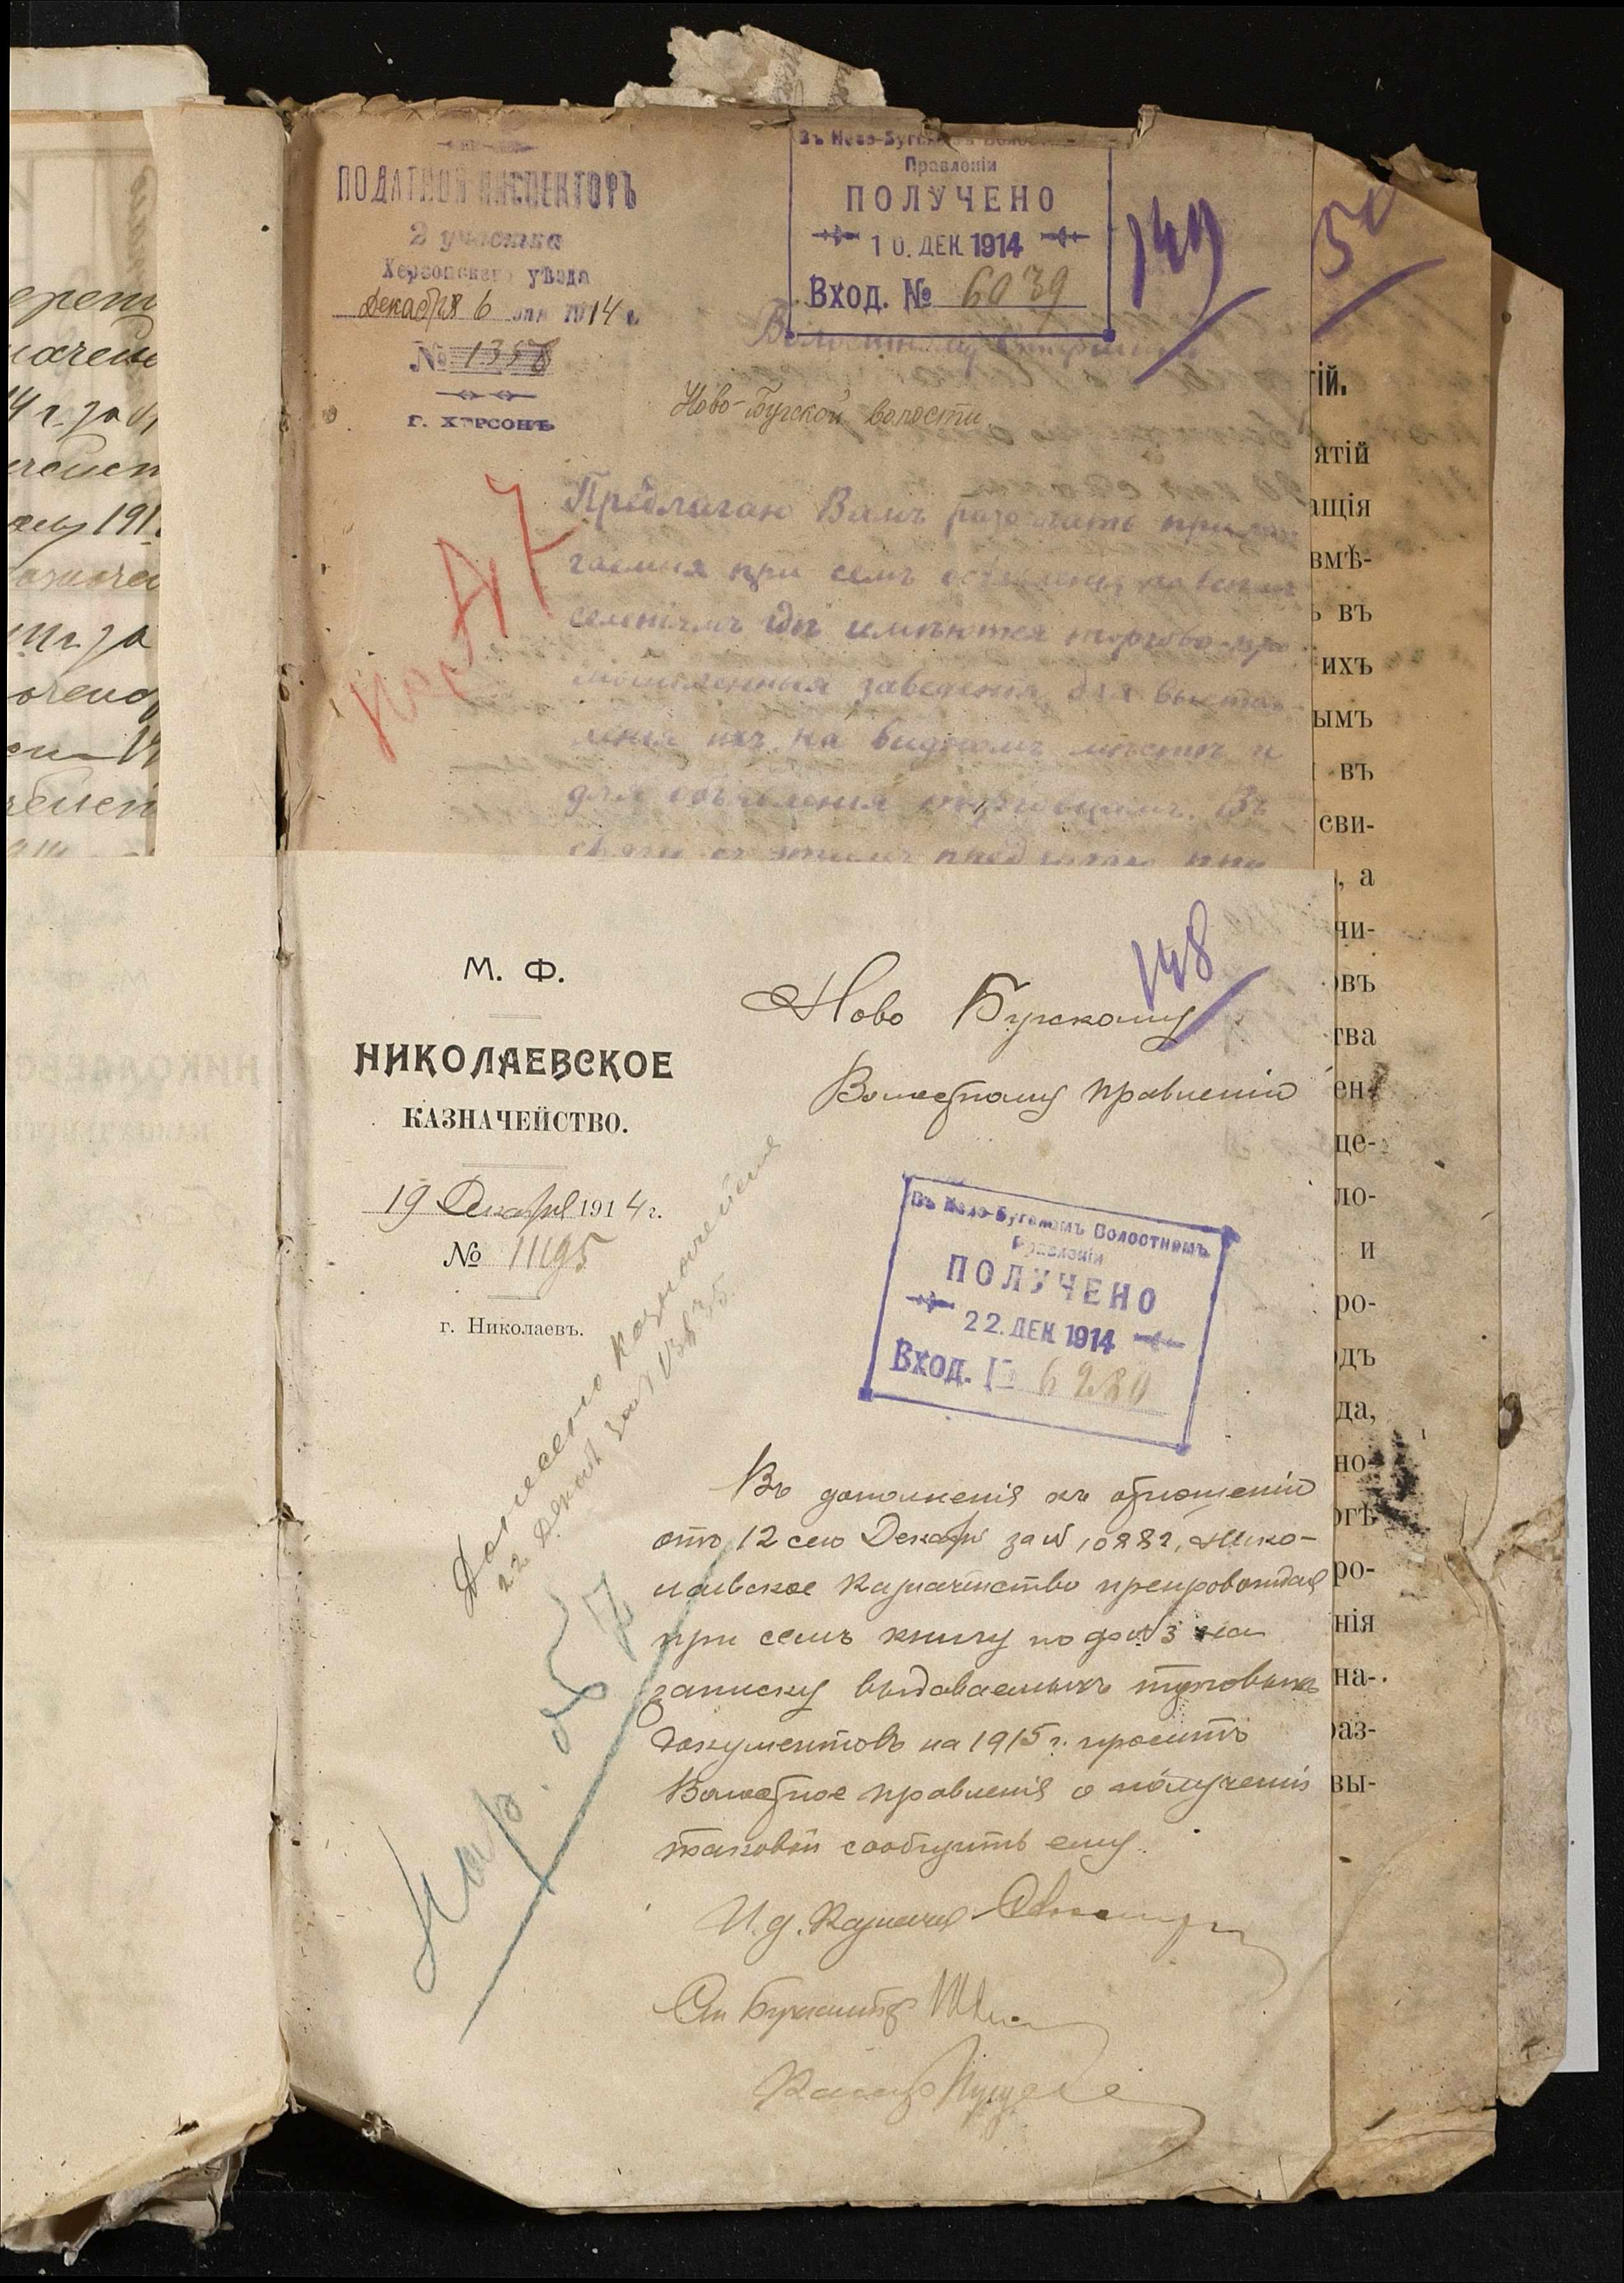 ПОДАТНОЙ ИНСПЕКТОРЪ
2 участка
Херсонскаго уѣзда
Декабря 6 дня 1914 г.
№ 1358
г. ХЕРСОНЪ
Въ Ново-Бугскомъ Волостномъ
Правленіи
ПОЛУЧЕНО
10. ДЕК 1914
Вход. № 6039
149
Волостному Старшинѣ
Ново-Бугской волости.
Предлагаю Вамъ разослать прила-
гаемыя при семъ объявленія по всѣмъ
селеніямъ гдѣ имѣются торгово-про-
мышленныя заведенія, для выстав-
ленія ихъ на видномъ мѣстѣ и
для объявленія торговцамъ. Въ
50
ій.
ятій
ащія
вмѣ-
ь въ
ихъ
ымъ
въ
сви-
, а
чи-
овъ
тва
ен-
це-
ло-
и
ро-
дъ
да,
но-
огѣ
ро-
нія
на-
раз-
вы-
148
М. Ф.
НИКОЛАЕВСКОЕ
КАЗНАЧЕЙСТВО.
19 Декабря 1914 г.
№ 11195
г. Николаевъ.
Ново Бугскому
Волостному Правленію
Въ Ново-Бугскомъ Волостномъ
Правленіи
ПОЛУЧЕНО
22. ДЕК 1914
Вход. № 6280
Донесено казначейству
22 Декаб за №
Въ дополненія къ отношенію
отъ 12 сего Декабря за № 10882, Нико-
лаевское Казначейство препровождая
при семъ книгу подъ № 3 на
записку выдаваемыхъ торговыхъ
документовъ на 1915 г. проситъ
Волостное правленія о полученіи
таковой сообщить ему.
И. д. Казначея
Ст Бухгалтеръ
Кассиръ